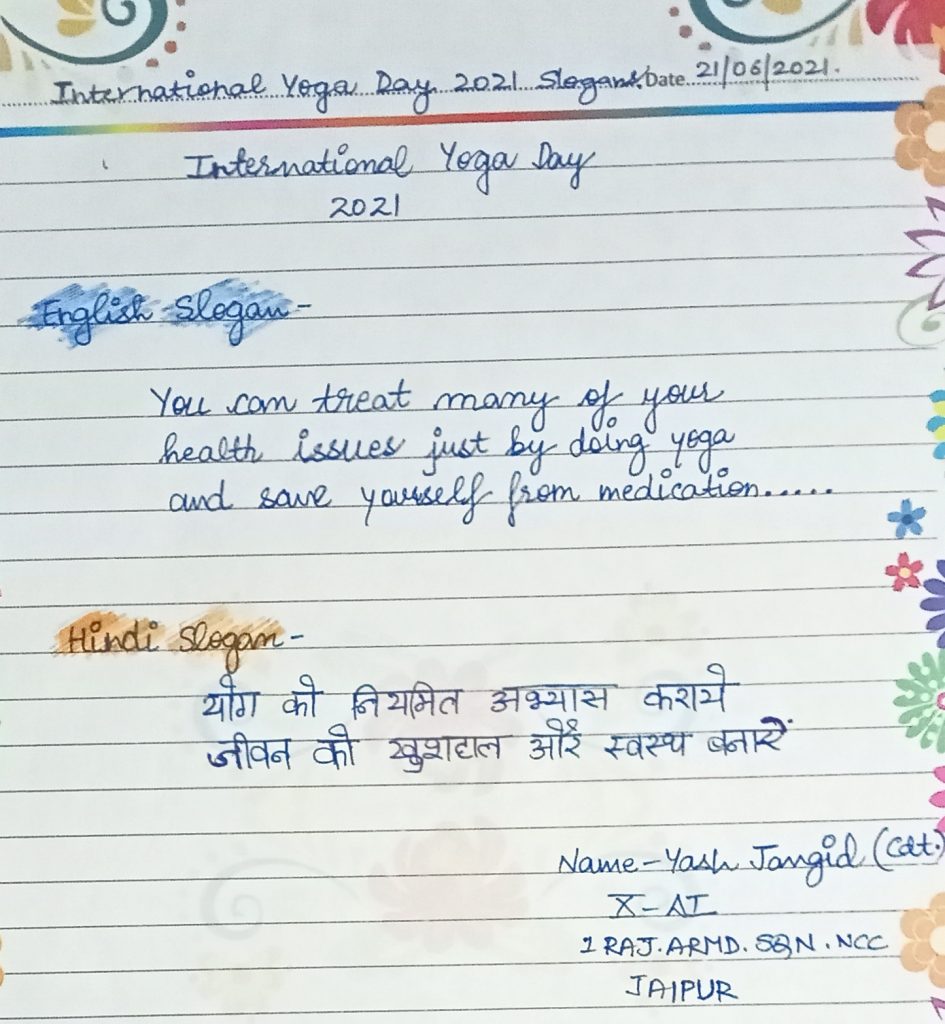 International Yoga Day 2021 Slogans Date 21/06/2021.
International Yoga Day
2021
English Slogan-
You can treat many of your
health issues just by doing yoga
and save yourself from medication.....
Hindi Slogan-
योग को नियमित अभ्यास कराये
जीवन को खुशहाल और स्वस्थ बनाऐं
Name-Yash Jangid (Cdt.)
X-A1
1 RAJ. ARMD. SQN. NCC
JAIPUR